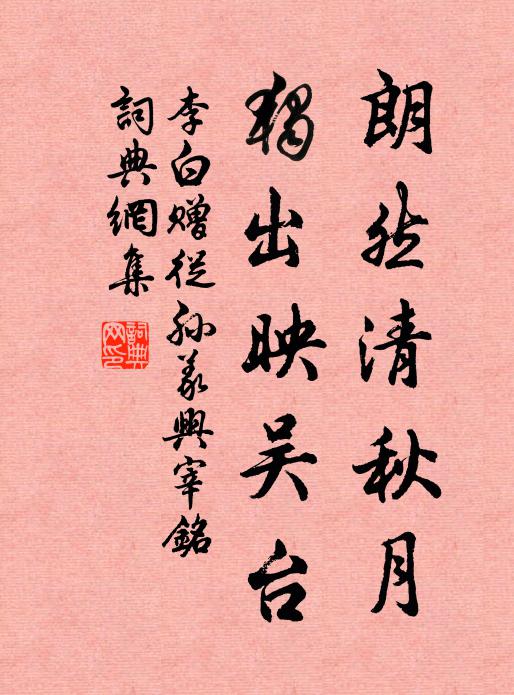 朗然清秋月
獨出映吴台
李白赠從孙義興宰銘
詞典網集
詞典網印